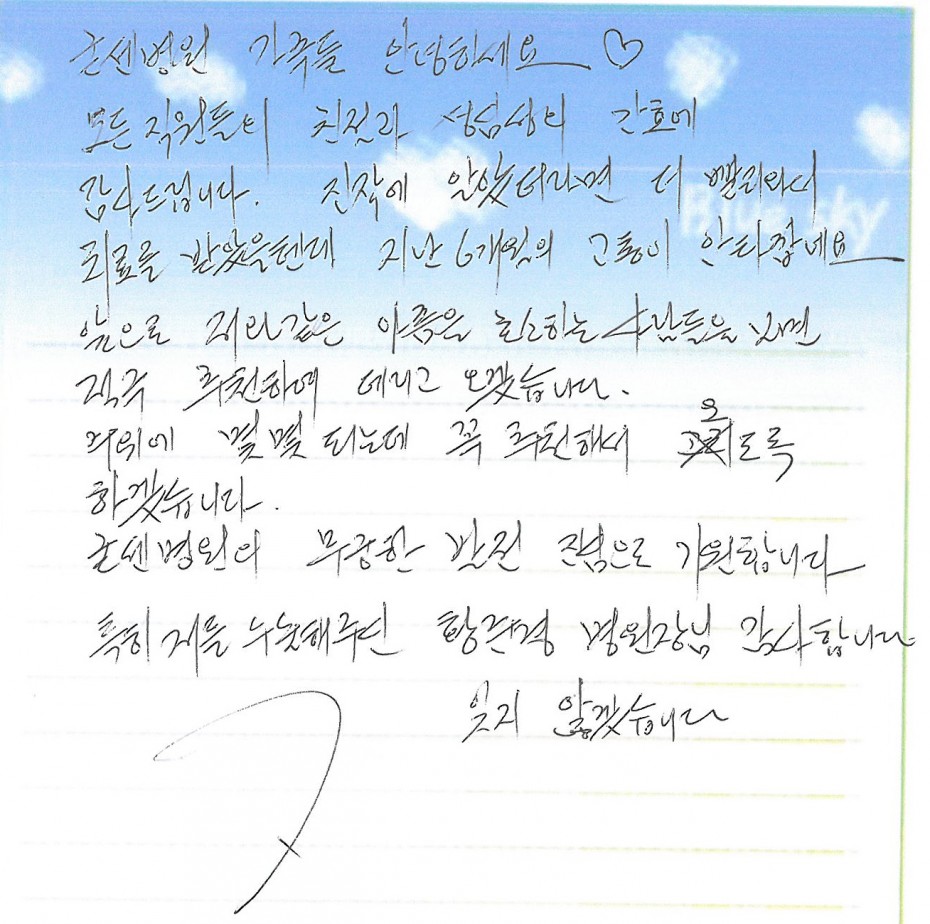 굳센병원 가족들 안녕하세요 ♡
모든 직원들의 친절과 성심성의 간호에
감사드립니다. 진작에 알았더라면 더 빨리와서
Blue sky
치료를 받았을텐데 지난 6개월의 고통이 안타깝네요
앞으로 저와같은 아픔을 호소하는 사람들을 보면
적극 추천하여 데리고 오겠습니다.
주위에 몇몇 되는데 꼭 추천해서 오도록
하겠습니다.
굳센병원의 무궁한 발전 진심으로 기원합니다
특히 저를 수술해주신 황은경 병원장님 감사합니다
잊지 않겠습니다